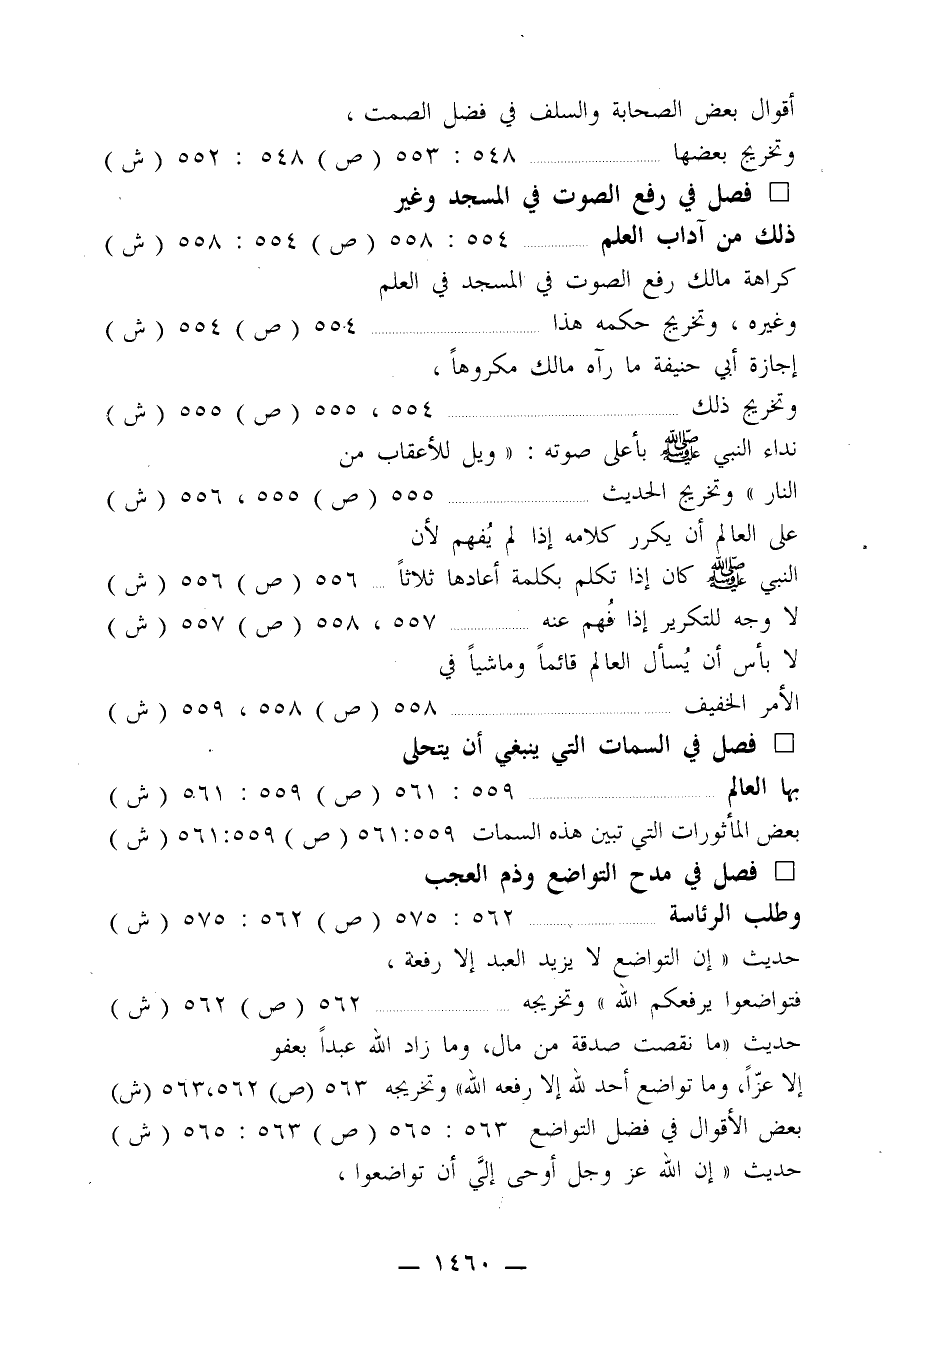 أقوال بعض الصحابة والسلف في فضل الصمت ،
وتخريج بعضها ........ ٥٤٨ : ٥٥٣ ( ص ) ٥٤٨ : ٥٥٢ ( ش )
□ فصل في رفع الصوت في المسجد وغير
ذلك من آداب العلم ........ ٥٥٤ : ٥٥٨ ( ص ) ٥٥٤ : ٥٥٨ ( ش )
كراهة مالك رفع الصوت في المسجد في العلم
وغيره ، وتخريج حكمه هذا ........ ٥٥٤ ( ص ) ٥٥٤ ( ش )
إجازة أبي حنيفة ما رآه مالك مكروهاً ،
وتخريج ذلك ........ ٥٥٤ ، ٥٥٥ ( ص ) ٥٥٥ ( ش )
نداء النبي ﷺ بأعلى صوته : « ويل للأعقاب من
النار » وتخريج الحديث ........ ٥٥٥ ( ص ) ٥٥٥ ، ٥٥٦ ( ش )
على العالم أن يكرر كلامه إذا لم يُفهم لأن
النبي ﷺ كان إذا تكلم بكلمة أعادها ثلاثاً .... ٥٥٦ ( ص ) ٥٥٦ ( ش )
لا وجه للتكرير إذا فُهم عنه ........ ٥٥٧ ، ٥٥٨ ( ص ) ٥٥٧ ( ش )
لا بأس أن يُسأل العالم قائماً وماشياً في
الأمر الخفيف ........ ٥٥٨ ( ص ) ٥٥٨ ، ٥٥٩ ( ش )
□ فصل في السمات التي ينبغي أن يتحلى
بها العالم ........ ٥٥٩ : ٥٦١ ( ص ) ٥٥٩ : ٥٦١ ( ش )
بعض المأثورات التي تبين هذه السمات ٥٥٩:٥٦١ ( ص ) ٥٥٩:٥٦١ ( ش )
□ فصل في مدح التواضع وذم العجب
وطلب الرئاسة ........ ٥٦٢ : ٥٧٥ ( ص ) ٥٦٢ : ٥٧٥ ( ش )
حديث « إن التواضع لا يزيد العبد إلا رفعة ،
فتواضعوا يرفعكم الله » وتخريجه ........ ٥٦٢ ( ص ) ٥٦٢ ( ش )
حديث «ما نقصت صدقة من مال، وما زاد الله عبداً بعفو
إلا عزّاً، وما تواضع أحد لله إلا رفعه الله» وتخريجه ٥٦٣ (ص) ٥٦٢،٥٦٣ (ش)
بعض الأقوال في فضل التواضع ٥٦٣ : ٥٦٥ ( ص ) ٥٦٣ : ٥٦٥ ( ش )
حديث « إن الله عز وجل أوحى إليَّ أن تواضعوا ،
— ١٤٦٠ —